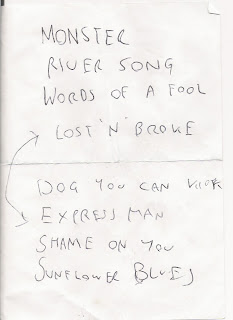 MONSTER
RIVER SONG
WORDS OF A FOOL
LOST 'N' BROKE
DOG YOU CAN KICK
EXPRESS MAN
SHAME ON YOU
SUNFLOWER BLUES